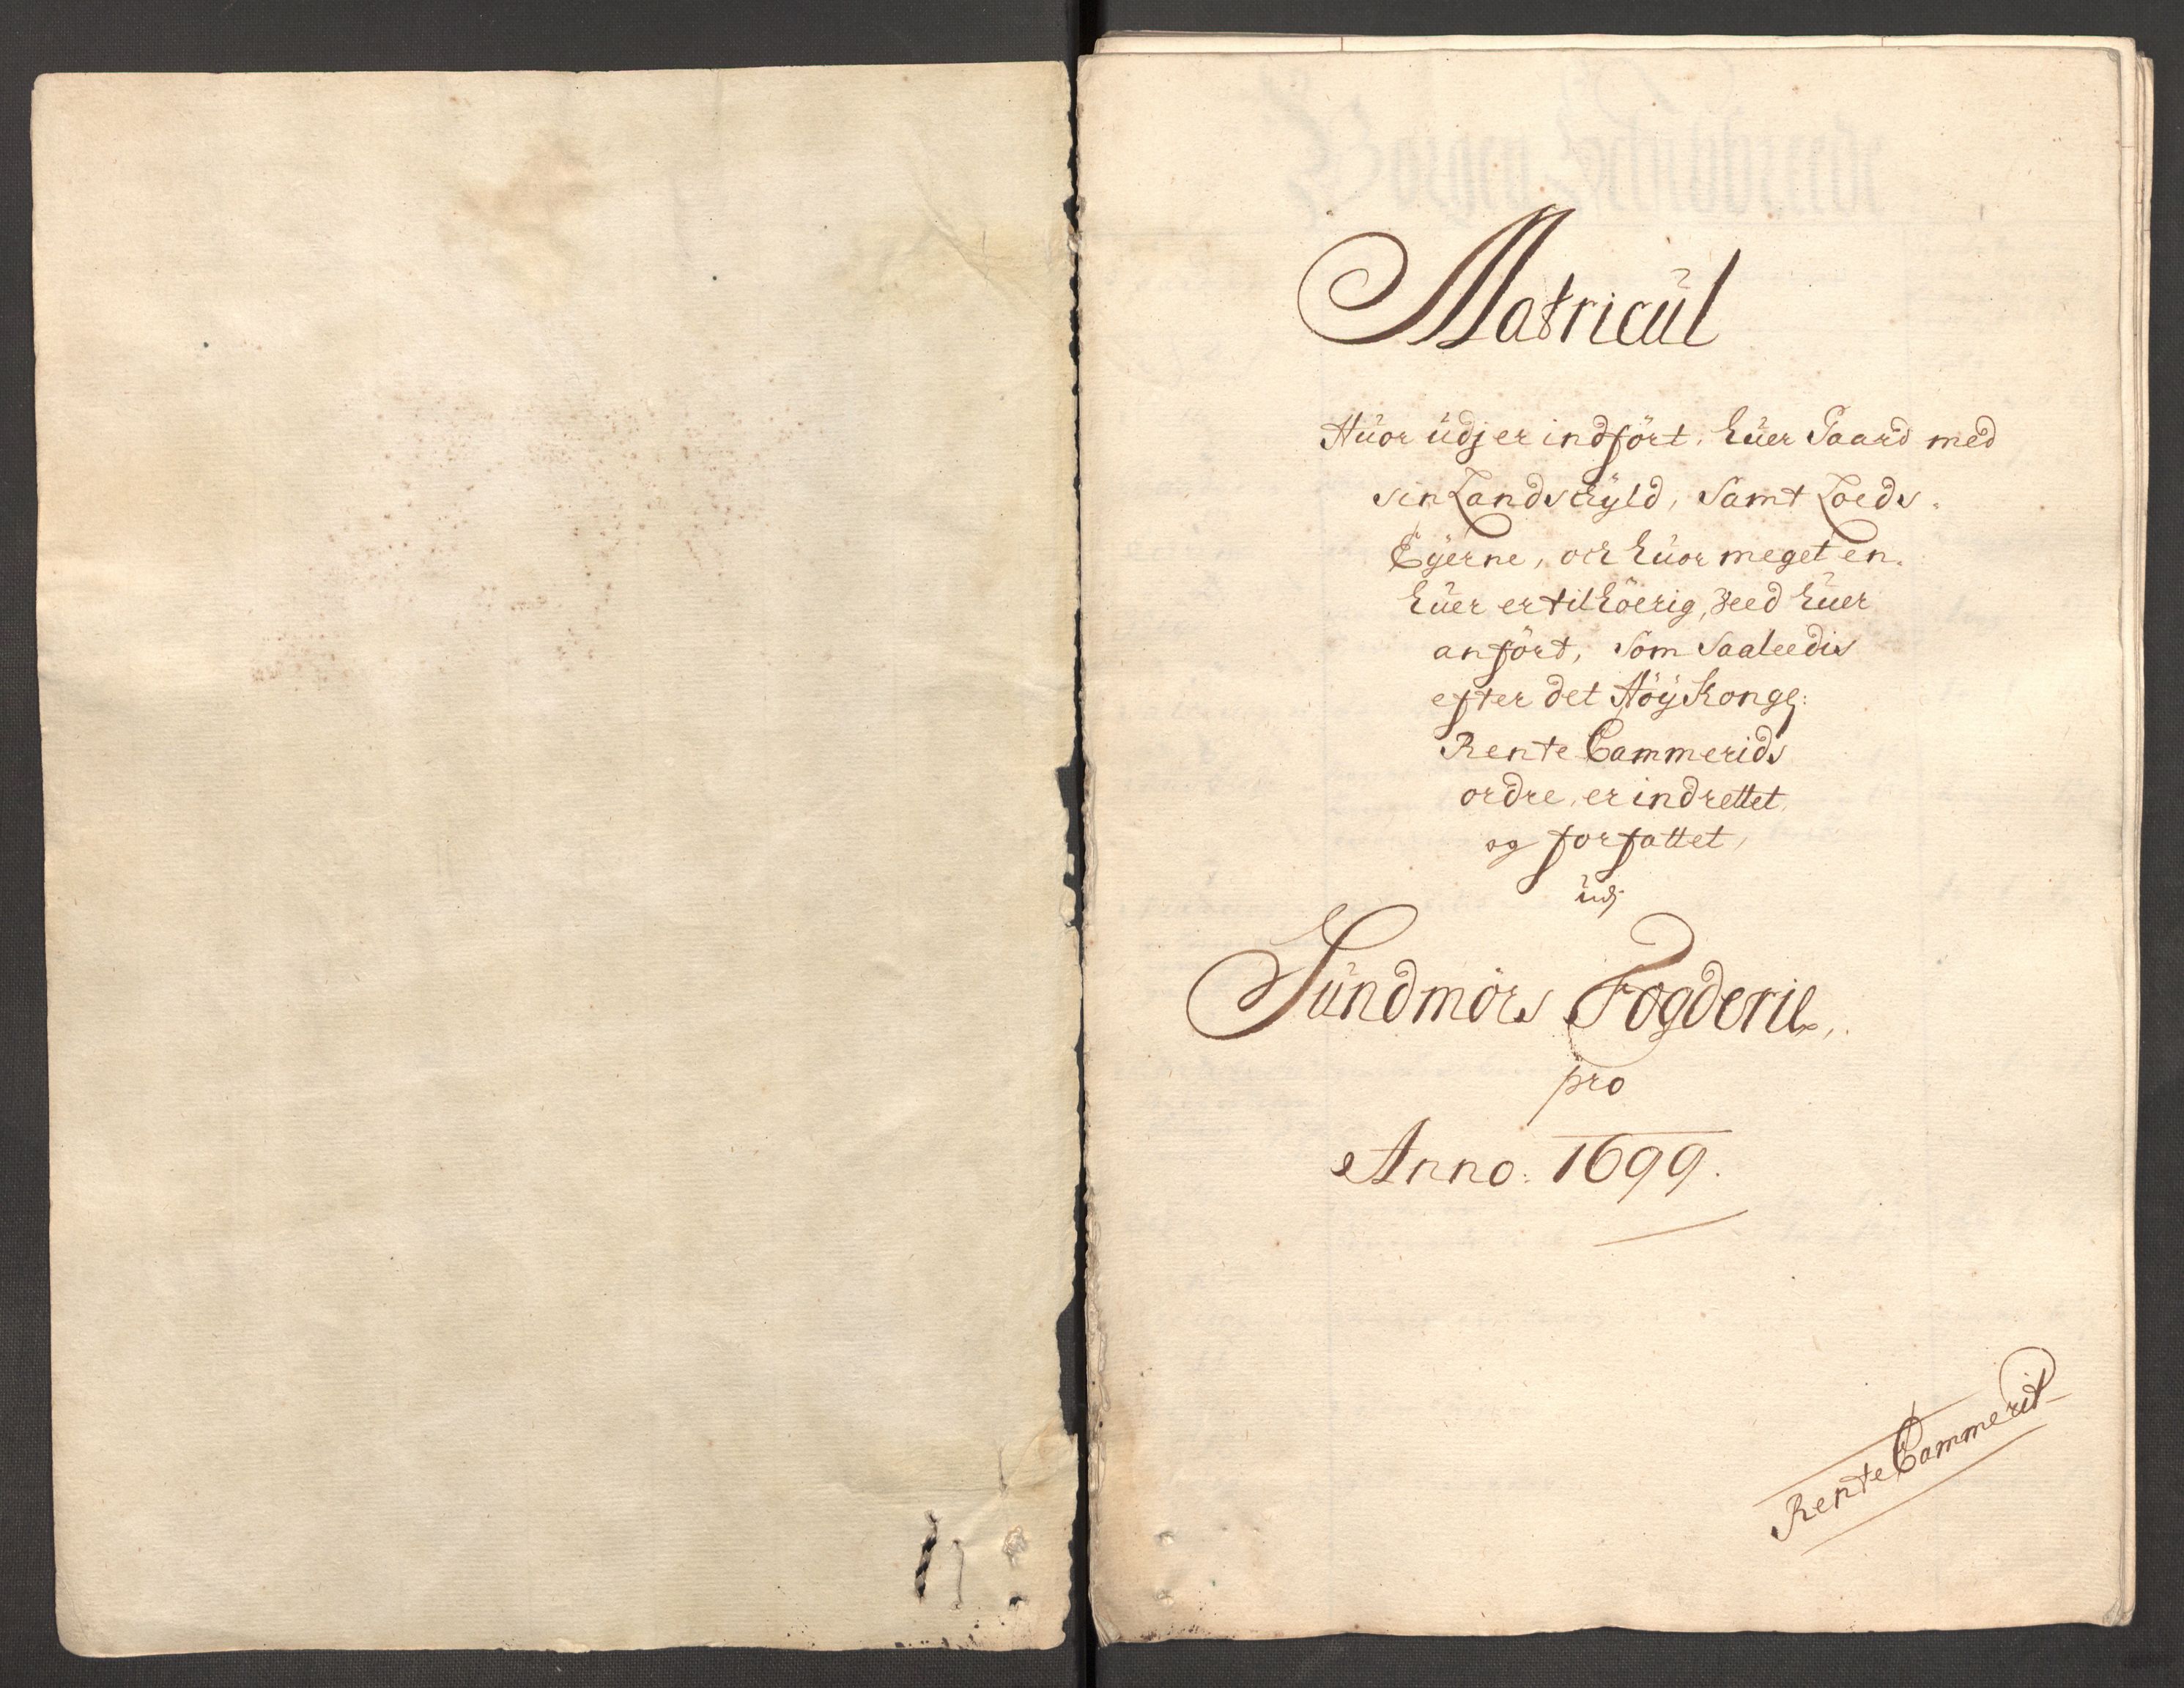 Matricul
Huor udj er indført, huer Gaard med
sin Landskyld, samt Loeds-
Eÿerne, och huor meget en-
huer er tilhöerig, Veed huer
anført, som saaleedis
efter det Höÿ Kongl:
Rente Cammerids
ordre, er indrettet,
og forfattet,
udj
Sundmörs Fogderie,
pro
Anno: 1699.
Rente Cammerit